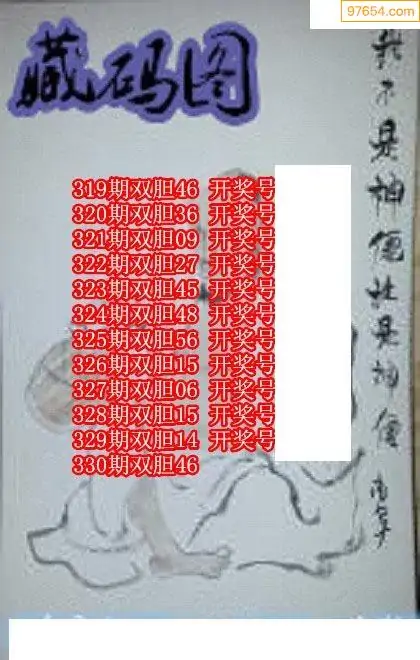 97654.com
藏码图
我不是神仙谁是神仙
319期双胆46 开奖号
320期双胆36 开奖号
321期双胆09 开奖号
322期双胆27 开奖号
323期双胆45 开奖号
324期双胆48 开奖号
325期双胆56 开奖号
326期双胆15 开奖号
327期双胆06 开奖号
328期双胆15 开奖号
329期双胆14 开奖号
330期双胆46